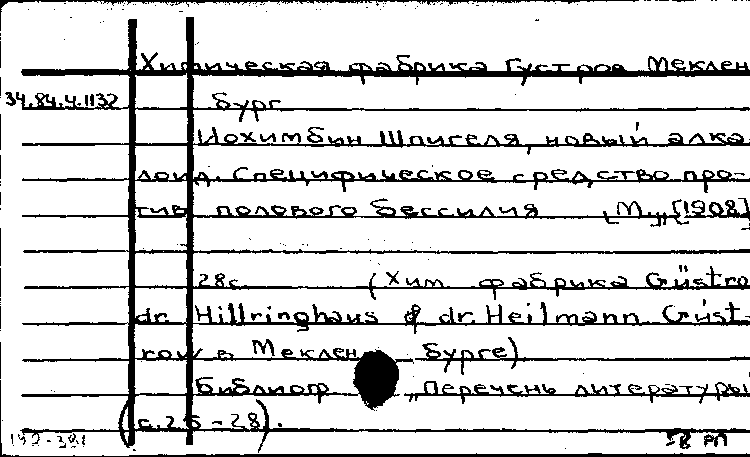 Химическая фабрика Густров Меклен
34.84.4.1132 бург
Иохимбин Шпигеля, новый алка
лоид. Специфическое средство про-
тив полового бессилия [М., [1908]
28с. (Хим. фабрика Güstro
dr. Hillringhaus & dr. Heilmann Güst-
row в Меклен бурге)
Библиогр. „Перечень литературы
(с.26-28).
192-381 58 РП